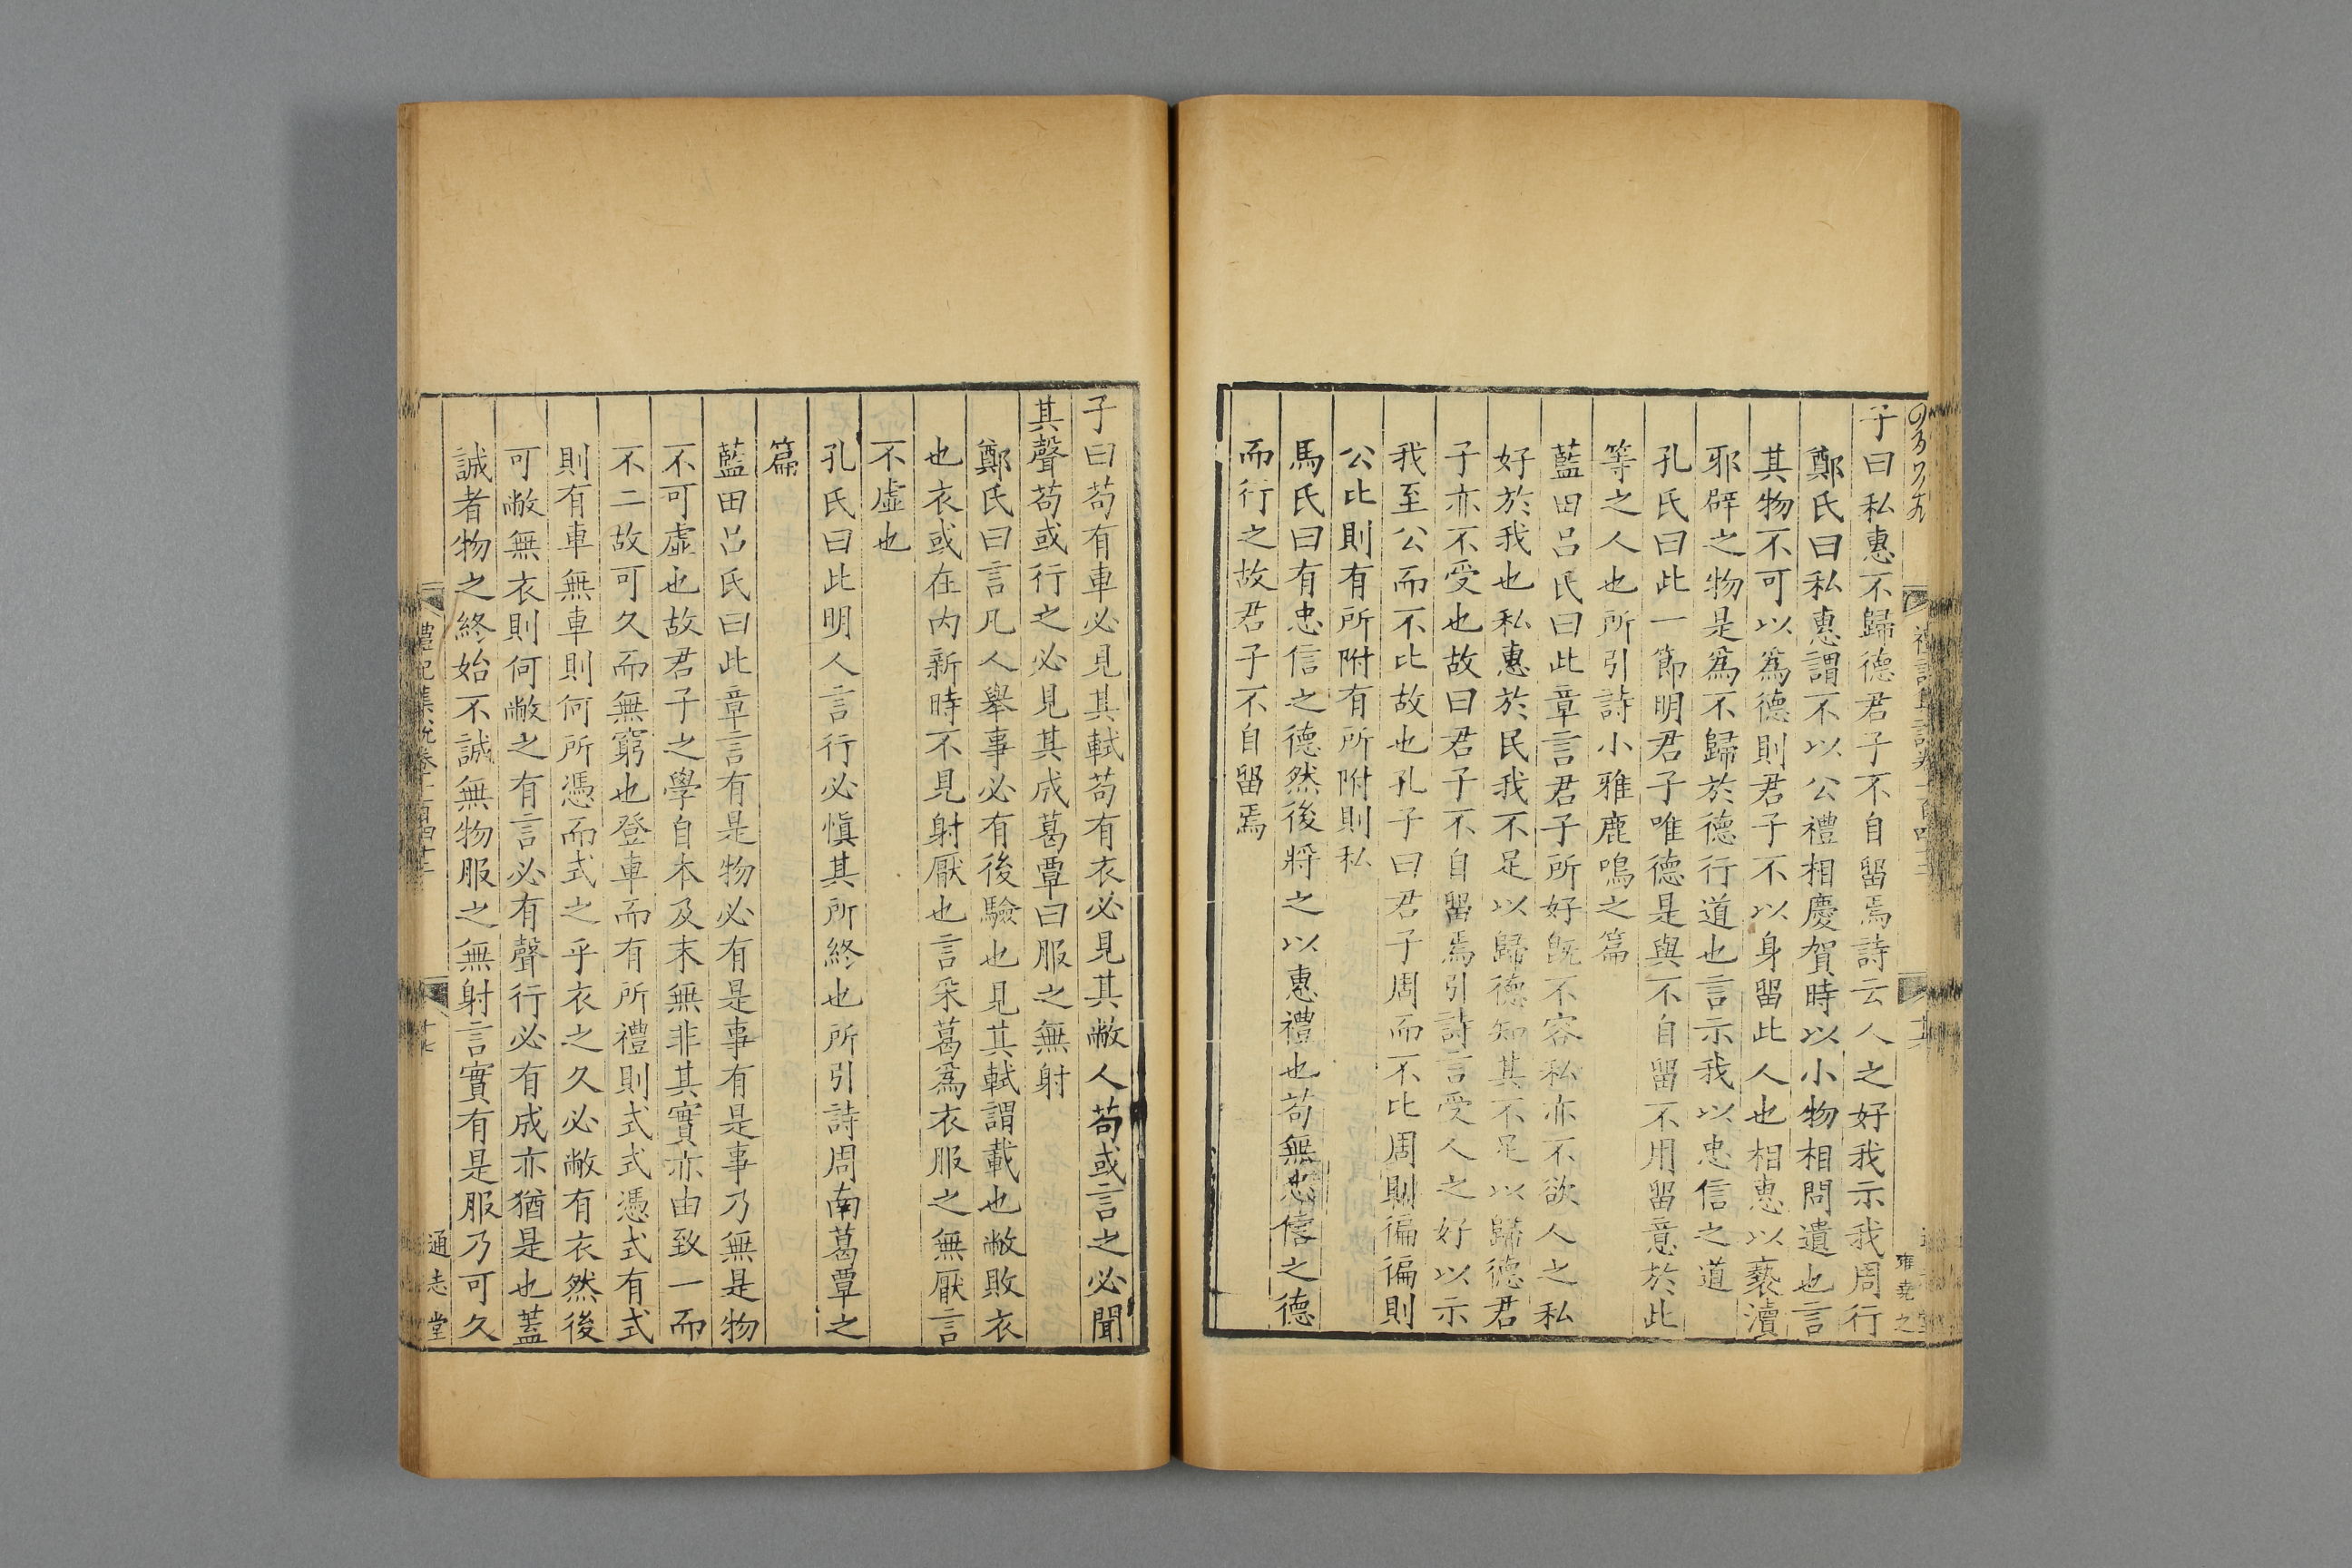 子曰私惠不歸德君子不自留焉詩云人之好我示我周行
鄭氏曰私惠謂不以公禮相慶賀時以小物相問遺也言
其物不可以爲德則君子不以身留此人也相惠以褻瀆
邪辟之物是爲不歸於德行道也言示我以忠信之道
孔氏曰此一節明君子唯德是與不自留不用留意於此
等之人也所引詩小雅鹿鳴之篇
藍田呂氏曰此章言君子所好旣不容私亦不欲人之私
好於我也私惠於民我不足以歸德知其不足以歸德君
子亦不受也故曰君子不自留焉引詩言受人之好以示
我至公而不比故也孔子曰君子周而不比周則徧徧則
公比則有所附有所附則私
馬氏曰有忠信之德然後將之以惠禮也苟無忠信之德
而行之故君子不自留焉
子曰苟有車必見其軾苟有衣必見其敝人苟或言之必聞
其聲苟或行之必見其成葛覃曰服之無射
鄭氏曰言凡人舉事必有後驗也見其軾謂載也敝敗衣
也衣或在内新時不見射厭也言采葛爲衣服之無厭言
不虛也
孔氏曰此明人言行必愼其所終也所引詩周南葛覃之
篇
藍田呂氏曰此章言有是物必有是事有是事乃無是物
不可虛也故君子之學自本及末無非其實亦由致一而
不二故可久而無窮也登車而有所禮則式式憑式有式
則有車無車則何所憑而式之乎衣之久必敝有衣然後
可敝無衣則何敝之有言必有聲行必有成亦猶是也蓋
誠者物之終始不誠無物服之無射言實有是服乃可久
禮記集說卷一百四十二
通志堂